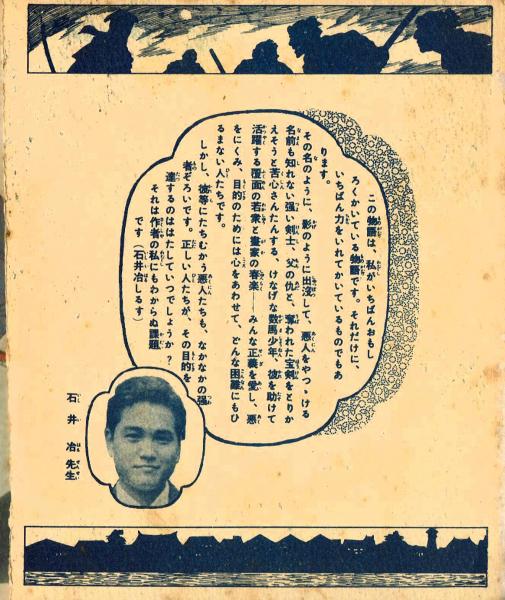 この物語は、私がいちばんおもし
ろくかいている物語です。それだけに、
いちばん力をいれてかいているものでもあ
ります。
その名のように、影のように出没して、悪人をやっつける
名前も知れない强い剣士、父の仇と、奪われた宝剣をとりか
えそうと苦心さんたんする、けなげな数馬少年、彼を助けて
活躍する覆面の若衆と画家の春楽――みんな正義を愛し、悪
をにくみ、目的のためには心をあわせて、どんな困難にもひ
るまない人たちです。
しかし、彼等にたちむかう悪人たちも、なかなかの强
者ぞろいです。正しい人たちが、その目的を
達するのははたしていつでしょうか？
それは作者の私にもわからぬ課題
です（石井冶しるす）
石井冶先生